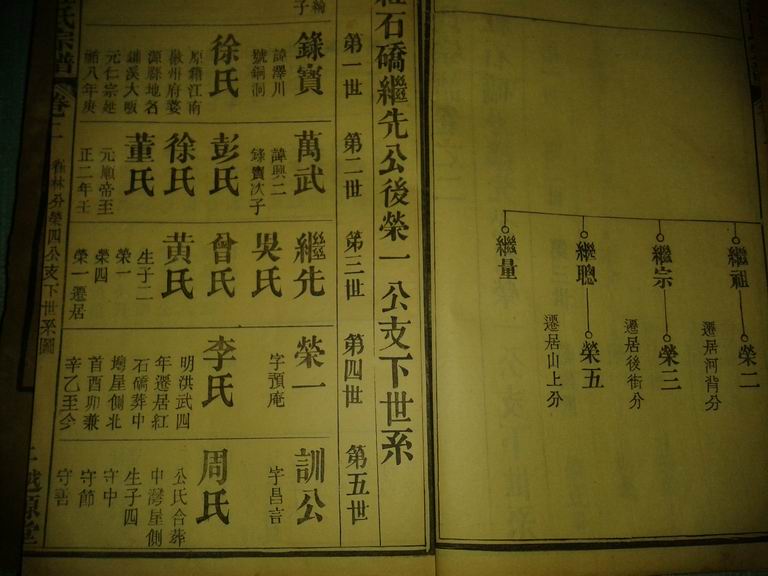 繼祖
榮二
遷居河背分
繼宗
榮三
遷居後街分
繼聰
榮五
遷居山上分
繼量
紅石礄繼先公後榮一公支下世系
第一世
錄寶
諱澤川
號銅洞
徐氏
原籍江南
徽州府婺
源縣地名
鋪溪大畈
元仁宗延
祐八年庚
第二世
萬武
諱興二
錄寶次子
彭氏
徐氏
董氏
元順帝至
正二年壬
第三世
繼先
吳氏
曾氏
黄氏
生子二
榮一
榮四
榮一遷居
第四世
榮一
字預庵
李氏
明洪武四
年遷居紅
石礄葬中
塆屋側北
首酉卯兼
辛乙至今
第五世
訓公
字昌言
周氏
公氏合葬
中灣屋側
生子四
守中
守節
守吾
氏宗譜
卷二
榮四公支下世系圖